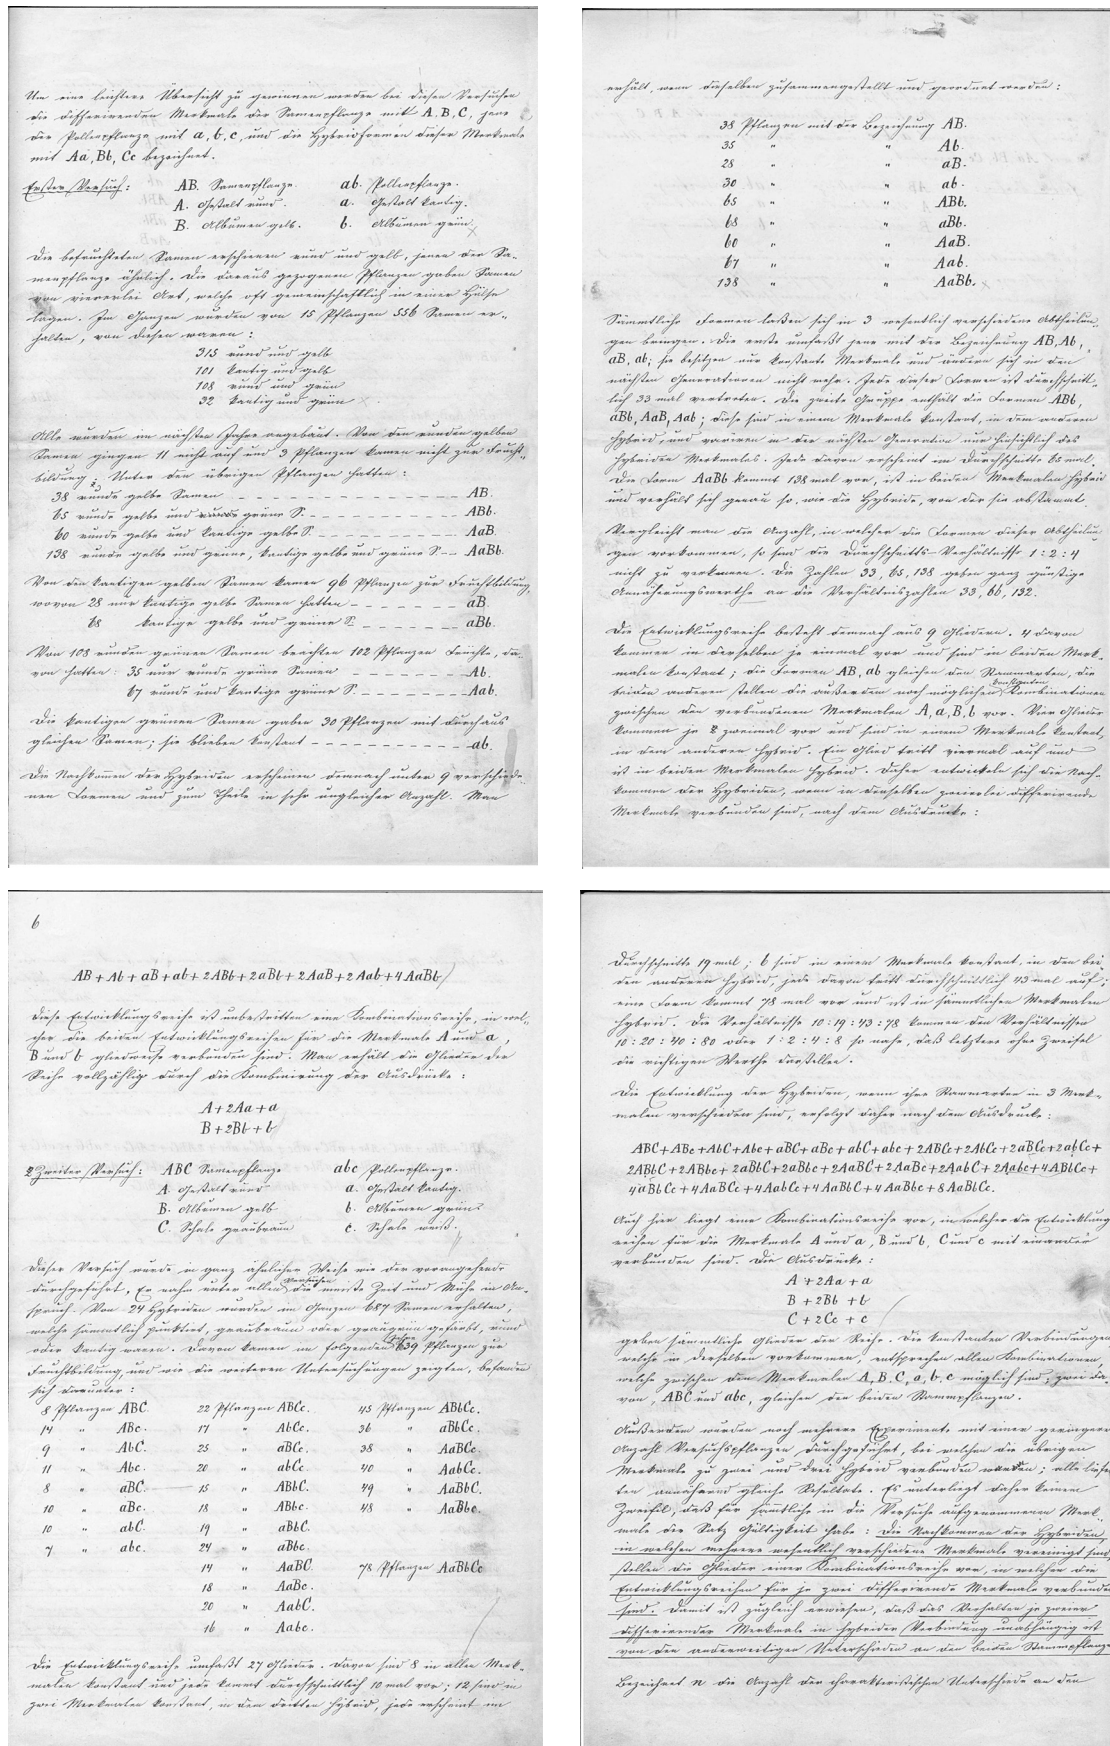 Um eine leichtere Übersicht zu gewinnen werden bei diesen Versuchen
die differirenden Merkmale der Samenpflanze mit A, B, C, jene
der Pollenpflanze mit a, b, c, und die Hybridformen dieser Merkmale
mit Aa, Bb, Cc bezeichnet.
Erster Versuch: AB. Samenpflanze. ab. Pollenpflanze.
A. Gestalt rund. a. Gestalt kantig.
B. Albumen gelb. b. Albumen grün.
Die befruchteten Samen erschienen rund und gelb, jenen der Sa-
menpflanze ähnlich. Die daraus gezogenen Pflanzen gaben Samen
von viererlei Art, welche oft gemeinschaftlich in einer Hülse
lagen. Im Ganzen wurden von 15 Pflanzen 556 Samen er-
halten, von diesen waren:
315 rund und gelb
101 kantig und gelb
108 rund und grün
32 kantig und grün
Alle wurden im nächsten Jahre angebaut. Von den runden gelben
Samen gingen 11 nicht auf und 3 Pflanzen kamen nicht zur Frucht-
bildung. Unter den übrigen Pflanzen hatten:
38 runde gelbe Samen AB.
65 runde gelbe und grüne S. ABb.
60 runde gelbe und kantige gelbe S. AaB.
138 runde gelbe und grüne, kantige gelbe und grüne S. AaBb.
Von den kantigen gelben Samen kamen 96 Pflanzen zur Fruchtbildung,
wovon 28 nur kantige gelbe Samen hatten aB.
68 kantige gelbe und grüne S. aBb.
Von 108 runden grünen Samen brachten 102 Pflanzen Früchte, da-
von hatten: 35 nur runde grüne Samen Ab.
67 runde und kantige grüne S. Aab.
Die kantigen grünen Samen gaben 30 Pflanzen mit durchaus
gleichen Samen; sie blieben konstant ab.
Die Nachkommen der Hybriden erscheinen demnach unter 9 verschiede-
nen Formen und zum Theile in sehr ungleicher Anzahl. Man
erhält, wenn dieselben zusammengestellt und geordnet werden:
38 Pflanzen mit der Bezeichnung AB.
35 " " Ab.
28 " " aB.
30 " " ab.
65 " " ABb.
68 " " aBb.
60 " " AaB.
67 " " Aab.
138 " " AaBb.
Sämmtliche Formen lassen sich in 3 wesentlich verschiedene Abtheilun-
gen bringen. Die erste umfaßt jene mit der Bezeichnung AB, Ab,
aB, ab; sie besitzen nur konstante Merkmale und ändern sich in den
nächsten Generationen nicht mehr. Jede dieser Formen ist durchschnitt-
lich 33 mal vertreten. Die zweite Gruppe enthält die Formen ABb,
aBb, AaB, Aab; diese sind in einem Merkmale konstant, in dem anderen
hybrid, und variren in der nächsten Generation nur hinsichtlich des
hybriden Merkmales. Jede davon erscheint im Durchschnitte 65 mal.
Die Form AaBb kommt 138 mal vor, ist in beiden Merkmalen hybrid
und verhält sich genau so, wie die Hybride, von der sie abstammt.
Vergleicht man die Anzahl, in welcher die Formen dieser Abtheilun-
gen vorkommen, so sind die Durchschnitts-Verhältnisse 1 : 2 : 4
nicht zu verkennen. Die Zahlen 33, 65, 138 geben ganz günstige
Annäherungswerthe an die Verhältniszahlen 33, 66, 132.
Die Entwicklungsreihe besteht demnach aus 9 Gliedern. 4 davon
kommen in derselben je einmal vor und sind in beiden Merk-
malen konstant; die Formen AB, ab gleichen den Stammarten, die
beiden anderen stellen die außerdem noch möglichen konstanten Kombinationen
zwischen den verbundenen Merkmalen A, a, B, b vor. Vier Glieder
kommen je zweimal vor und sind in einem Merkmale konstant,
in dem anderen hybrid. Ein Glied tritt viermal auf und
ist in beiden Merkmalen hybrid. Daher entwickeln sich die Nach-
kommen der Hybriden, wenn in denselben zweierlei differirende
Merkmale verbunden sind, nach dem Ausdrucke:
6
AB + Ab + aB + ab + 2ABb + 2aBb + 2AaB + 2Aab + 4AaBb
Diese Entwicklungsreihe ist unbestritten eine Kombinationsreihe, in wel-
cher die beiden Entwicklungsreihen für die Merkmale A und a,
B und b gliedweise verbunden sind. Man erhält die Glieder der
Reihe vollzählig durch die Kombinirung der Ausdrücke:
A + 2Aa + a
B + 2Bb + b
Zweiter Versuch: ABC Samenpflanze abc Pollenpflanze.
A. Gestalt rund a. Gestalt kantig.
B. Albumen gelb b. Albumen grün.
C. Schale graubraun c. Schale weiß.
Dieser Versuch wurde in ganz ähnlicher Weise wie der vorangehende
durchgeführt. Er nahm unter allen Versuchen die meiste Zeit und Mühe in An-
spruch. Von 24 Hybriden wurden im Ganzen 687 Samen erhalten,
welche sämmtlich punktirt, graubraun oder graugrün gefärbt, rund
oder kantig waren. Davon kamen im folgenden Jahre 639 Pflanzen zur
Fruchtbildung, und wie die weiteren Untersuchungen zeigten, befanden
sich darunter:
8 Pflanzen ABC. 22 Pflanzen ABCc. 45 Pflanzen ABbCc.
14 " ABc. 17 " AbCc. 36 " aBbCc.
9 " AbC. 25 " aBCc. 38 " AaBCc.
11 " Abc. 20 " abCc. 40 " AabCc.
8 " aBC. 15 " ABbC. 49 " AaBbC.
10 " aBc. 18 " ABbc. 48 " AaBbc.
10 " abC. 19 " aBbC.
7 " abc. 24 " aBbc.
14 " AaBC. 78 Pflanzen AaBbCc
18 " AaBc.
20 " AabC.
16 " Aabc.
Die Entwicklungsreihe umfaßt 27 Glieder. Davon sind 8 in allen Merk-
malen konstant und jede kommt durchschnittlich 10 mal vor; 12 sind in
zwei Merkmalen konstant, in dem dritten hybrid, jede erscheint im
Durchschnitte 19 mal; 6 sind in einem Merkmale konstant, in den bei-
den anderen hybrid, jede davon tritt durchschnittlich 43 mal auf;
eine Form kommt 78 mal vor und ist in sämmtlichen Merkmalen
hybrid. Die Verhältnisse 10 : 19 : 43 : 78 kommen den Verhältnissen
10 : 20 : 40 : 80 oder 1 : 2 : 4 : 8 so nahe, daß letztere ohne Zweifel
die richtigen Werthe darstellen.
Die Entwicklung der Hybriden, wenn ihre Stammarten in 3 Merk-
malen verschieden sind, erfolgt daher nach dem Ausdrucke:
ABC + ABc + AbC + Abc + aBC + aBc + abC + abc + 2ABCc + 2AbCc + 2aBCc + 2abCc +
2ABbC + 2ABbc + 2aBbC + 2aBbc + 2AaBC + 2AaBc + 2AabC + 2Aabc + 4ABbCc +
4aBbCc + 4AaBCc + 4AabCc + 4AaBbC + 4AaBbc + 8AaBbCc.
Auch hier liegt eine Kombinationsreihe vor, in welcher die Entwicklungs
reihen für die Merkmale A und a, B und b, C und c mit einander
verbunden sind. Die Ausdrücke:
A + 2Aa + a
B + 2Bb + b
C + 2Cc + c
geben sämmtliche Glieder der Reihe. Die konstanten Verbindungen
welche in derselben vorkommen, entsprechen allen Kombinationen,
welche zwischen den Merkmalen A, B, C, a, b, c möglich sind; zwei da-
von, ABC und abc, gleichen den beiden Stammpflanzen.
Außerdem wurden noch mehrere Experimente mit einer geringeren
Anzahl Versuchspflanzen durchgeführt, bei welchen die übrigen
Merkmale zu zwei und drei hybrid verbunden waren; alle liefer-
ten annähernd gleiche Resultate. Es unterliegt daher keinem
Zweifel, daß für sämmtliche in die Versuche aufgenommenen Merk-
male der Satz Gültigkeit habe: die Nachkommen der Hybriden,
in welchen mehrere wesentlich verschiedene Merkmale vereinigt sind,
stellen die Glieder einer Kombinationsreihe vor, in welchen die
Entwicklungsreihen für je zwei differirende Merkmale verbunden
sind. Damit ist zugleich erwiesen, daß das Verhalten je zweier
differirender Merkmale in hybrider Verbindung unabhängig ist
von den anderweitigen Unterschieden an den beiden Stammpflanzen.
Bezeichnet n die Anzahl der charakteristischen Unterschiede an den